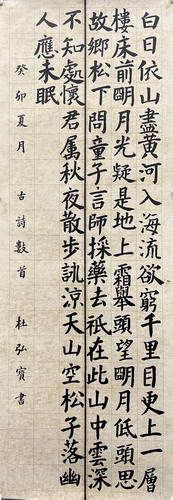 白日依山盡黄河入海流欲窮千里目更上一層
樓床前明月光疑是地上霜舉頭望明月低頭思
故鄉松下問童子言師採藥去衹在此山中雲深
不知處懷君属秋夜散步詠涼天山空松子落幽
人應未眠
癸卯夏月 古詩数首 杜弘賓書